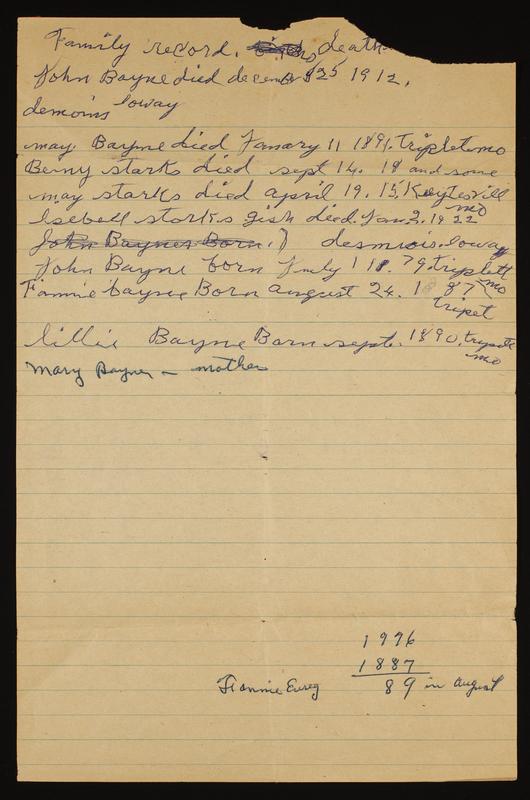 Family record. death
John Bayne died december 25 1912.
demoins Ioway
may Bayne died Janary 11 1891. tripletmo
Beny starks died sept 14. 18 and some
may starks died april 19. 15, Keytesvill
mo
Isebell starks gish died. Jan 2, 1922
John Baynes Born. desmiois. Ioway
John Bayne born July 11. 79 triplett
mo
Fannie bayne Born august 24. 1887
tripet
lillie Bayne Born sept. 1890. triplett
mo
Mary Bayne - mother
1976
1887
Fannie Eurey 89 in August